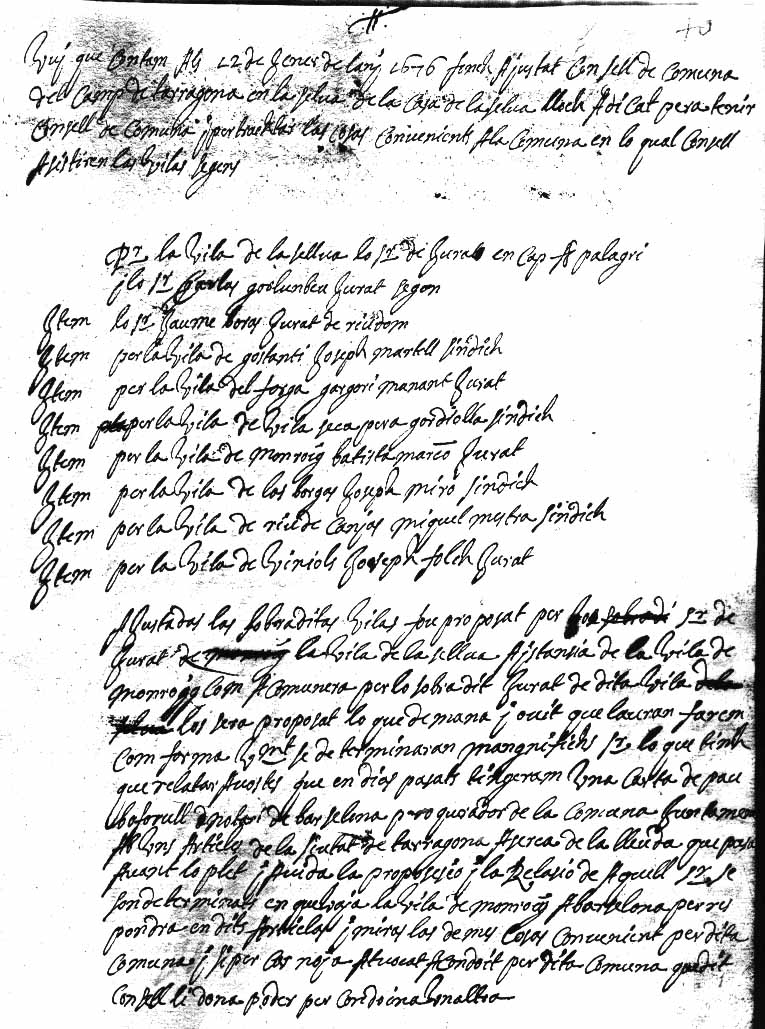 Vuj que Contam Als 12 de Jener de lanj 1676 fonch Ajustat Consell de Comuna
del Camp de tarragona en la selva de la Casa de la selva lloch Adicat pera tenir
Consell de Comuna j per tractar las cosas Convenients A la Comuna en lo qual Consell
Asistiren las vilas segens
Pr. la vila de la sellva lo sr. de Jurat en Cap palagri
j lo sr. Carlos Jurat segon
Item lo sr. Jaume boras Jurat de riudom
Item per la vila de gostanti Joseph martell sindich
Item per la vila del forga gargori manant Jurat
Item per la vila de vila seca pera gordiolla sindich
Item per la vila de monroig batista marco Jurat
Item per la vila de las borgas Joseph miro sindich
Item per la vila de riude Canjas miquel mestra sindich
Item per la vila de viniols Joseph folch Jurat
AJustadas las sobraditas vilas fou proposat per sr. de
Jurat de la vila de la sellva Astansia de la vila de
monroig Com A Comunera per lo sobradit Jurat de dita vila
los sera proposat lo que demana j ouit que lauran farem
Com forma se determinaran mangnifichs srs. lo que tinch
que relatar Avostes que en dias pasats tingeram una Carta de pau
notari de barselona procurador de la Comuna Juntament
Ab uns Articles de la siutat de tarragona Aserca de la lleuda que pasa
Avant lo plet j Auida la proposesio j la Relasio de Aquell sr. se
son determinats en que vaja la vila de monroig A barselona per res
pondra en dits Articlas j miras las demes Cosas Convenient per dita
Comuna j si per Cas noja Avocat Acondoit per dita Comuna quedit
Consell li dona poder per Condoina un altra